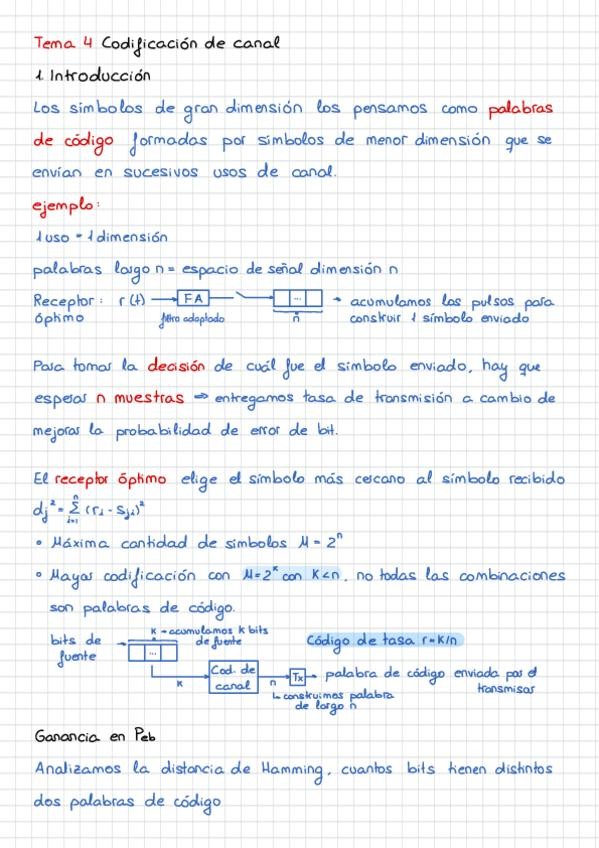 Tema 4 Codificación de canal
1 Introducción
Los símbolos de gran dimensión los pensamos como palabras
de código formadas por símbolos de menor dimensión que se
envían en sucesivos usos de canal.
ejemplo:
1 uso = 1 dimensión
palabras largo n = espacio de señal dimensión n
Receptor: r(t) → FA ... → acumulamos los pulsos para
óptimo filtro adaptado n construir 1 símbolo enviado
Para tomar la decisión de cuál fue el símbolo enviado, hay que
esperar n muestras ⇒ entregamos tasa de transmisión a cambio de
mejorar la probabilidad de error de bit.
El receptor óptimo elige el símbolo más cercano al símbolo recibido
dj² = Σ(i=1, n) (ri - sji)²
• Máxima cantidad de símbolos M = 2ⁿ
• Mayor codificación con M=2ᵏ con K<n, no todas las combinaciones
son palabras de código.
bits de K → acumulamos k bits
fuente de fuente Código de tasa r=K/n
...
K Cod. de canal n Tx → palabra de código enviada por el
transmisor
↳ construimos palabra
de largo n
Ganancia en Peb
Analizamos la distancia de Hamming, cuantos bits tienen distintos
dos palabras de código